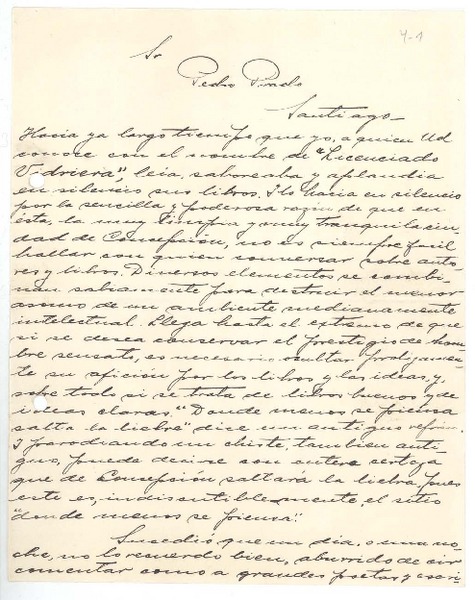 4-1
Sr
Pedro Prado
Santiago
Hacia ya largo tiempo que yo, a quien Ud
conoce con el nombre de "Licenciado
Vidriera", leia, saboreaba y aplaudia
en silencio sus libros. I lo hacia en silencio
por la sencilla y poderosa razón de que en
ésta, la muy limpia y muy tranquila ciu
dad de Concepción, no es siempre fácil
hallar con quien conversar sobre auto
res y libros. Diversos elementos se combi
nan sabiamente para destruir el menor
asomo de un ambiente medianamente
intelectual. Llega hasta el estremo de que
si se desea conservar el prestigio de hom
bre sensato, es necesario ocultar prolijamen
te su afición por los libros y las ideas, y
sobre todo si se trata de libros buenos y de
ideas claras. "Donde menos se piensa
salta la liebre" dice un antiguo refrán.
I parodiando un chiste, tambien anti
guo, puede decirse con entera certeza
que de Concepción saltará la liebre, pues
este es, indiscutiblemente, el sitio
"donde menos se piensa".
Sucedió que un día, o una no
che, no lo recuerdo bien, aburrido de
comentar como a grandes poetas y escri